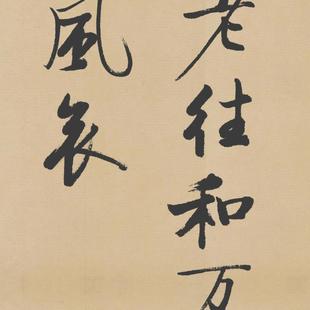 老往和万
風哀